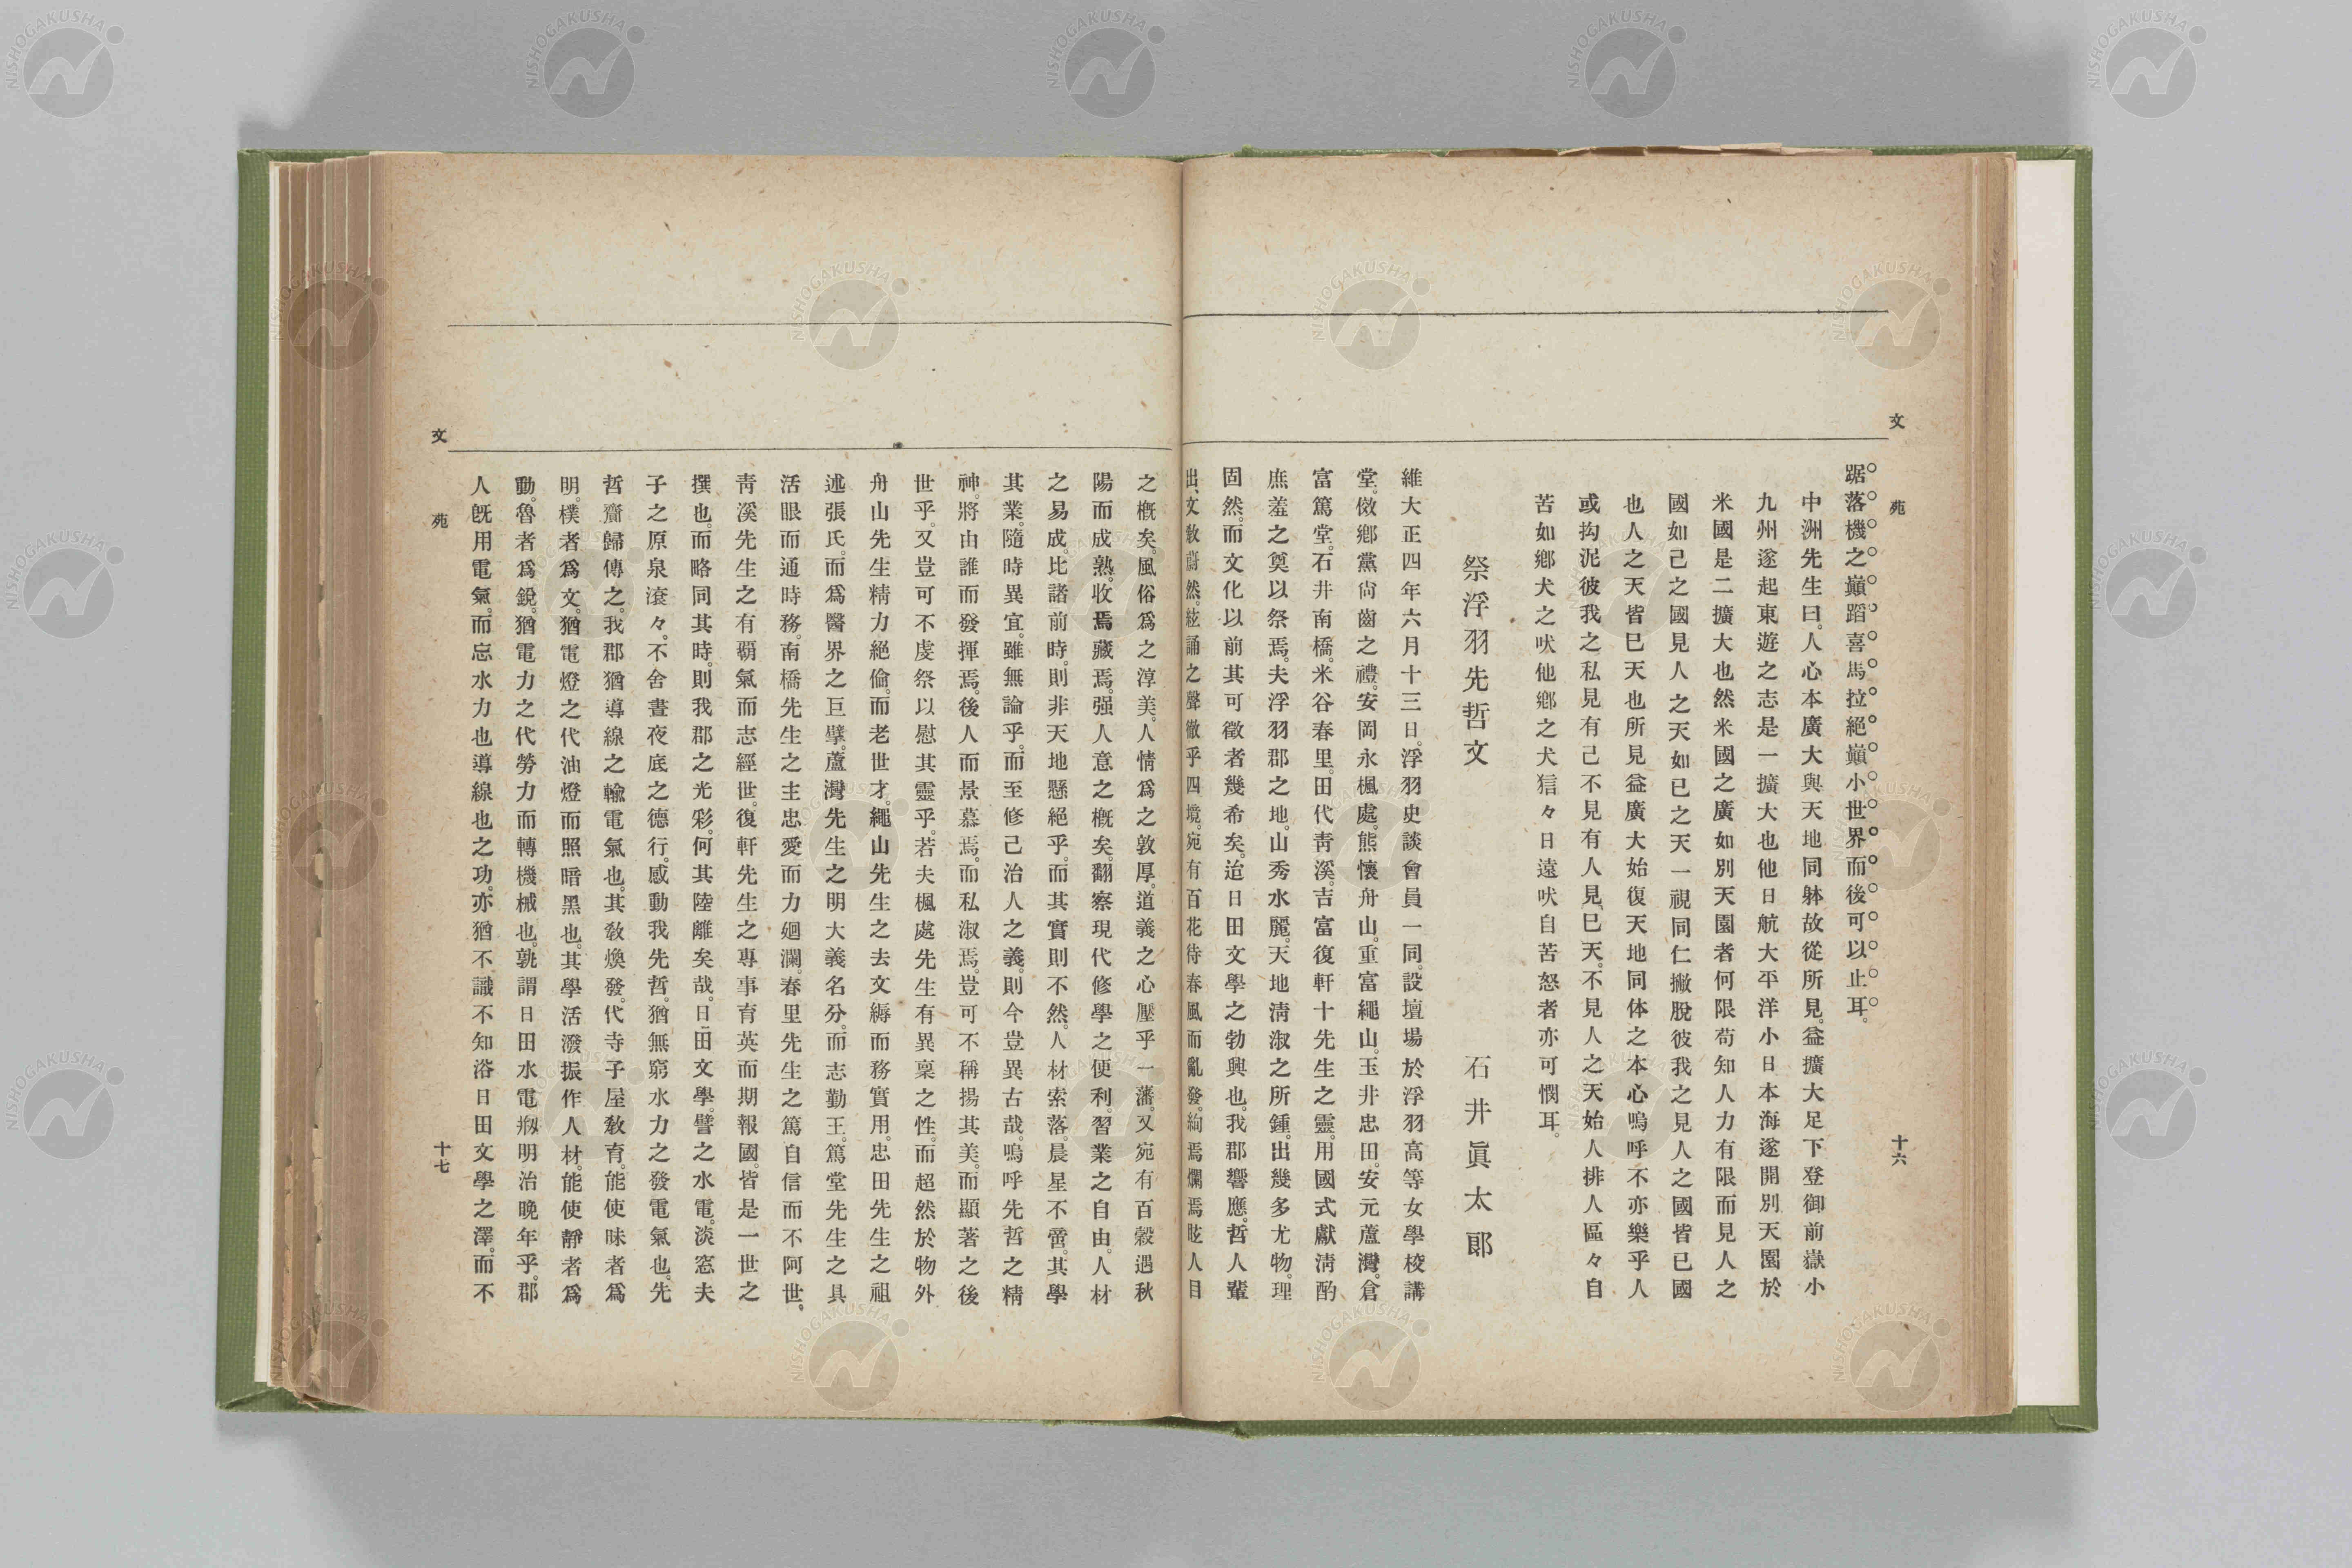 文苑
十六
踞落機之巓蹈喜馬拉絕巓小世界而後可以止耳。
中洲先生曰。人心本廣大與天地同躰故從所見。益擴大足下登御前嶽小
九州遂起東遊之志是一擴大也他日航大平洋小日本海遂開別天園於
米國是二擴大也然米國之廣如別天園者何限苟知人力有限而見人之
國如己之國見人之天如已之天一視同仁撇脫彼我之見人之國皆已國
也人之天皆巳天也所見益廣大始復天地同体之本心嗚呼不亦樂乎人
或拘泥彼我之私見有己不見有人見巳天。不見人之天始人排人區々自
苦如鄕犬之吠他鄕之犬狺々日遠吠自苦怒者亦可憫耳。
祭浮羽先哲文
石井眞太郞
維大正四年六月十三日。浮羽史談會員一同。設壇場於浮羽高等女學校講
堂。倣鄕黨尙齒之禮。安岡永楓處。熊懷舟山。重富繩山。玉井忠田。安元蘆灣。倉
富篤堂。石井南橋。米谷春里。田代靑溪。吉富復軒十先生之靈。用國式獻淸酌
庶羞之奠以祭焉。夫浮羽郡之地。山秀水麗。天地淸淑之所鍾。出幾多尤物。理
固然。而文化以前其可徵者幾希矣。迨日田文學之勃興也。我郡響應。哲人輩
出、文敎蔚然。絃誦之聲徹乎四境。宛有百花待春風而亂發。絢焉爛焉眩人目
之槪矣。風俗爲之淳美。人情爲之敦厚。道義之心壓乎一藩。又宛有百穀遇秋
陽而成熟。收焉藏焉。强人意之槪矣。翻察現代修學之便利。習業之自由。人材
之易成。比諸前時。則非天地懸絕乎。而其實則不然。人材索落。晨星不啻。其學
其業。隨時異宜。雖無論乎。而至修己治人之義。則今豈異古哉。嗚呼先哲之精
神。將由誰而發揮焉。後人而景慕焉。而私淑焉。豈可不稱揚其美。而顯著之後
世乎。又豈可不虔祭以慰其靈乎。若夫楓處先生有異稟之性。而超然於物外
舟山先生精力絕倫。而老世才。繩山先生之去文縟而務實用。忠田先生之祖
述張氏。而爲醫界之巨擘。蘆灣先生之明大義名分。而志勤王。篤堂先生之具
活眼而通時務。南橋先生之主忠愛而力廻瀾。春里先生之篤自信而不阿世。
靑溪先生之有覇氣而志經世。復軒先生之專事育英而期報國。皆是一世之
撰也。而略同其時。則我郡之光彩。何其陸離矣哉。日田文學。譬之水電。淡窓夫
子之原泉滾々。不舍晝夜底之德行。感動我先哲。猶無窮水力之發電氣也。先
哲齎歸傳之。我郡猶導線之輸電氣也。其敎煥發。代寺子屋敎育。能使昧者爲
明。樸者爲文。猶電燈之代油燈而照暗黑也。其學活潑振作人材。能使靜者爲
動。魯者爲銳。猶電力之代勞力而轉機械也。孰謂日田水電刱明治晩年乎。郡
人旣用電氣。而忘水力也導線也之功。亦猶不識不知浴日田文學之澤。而不
文苑
十七